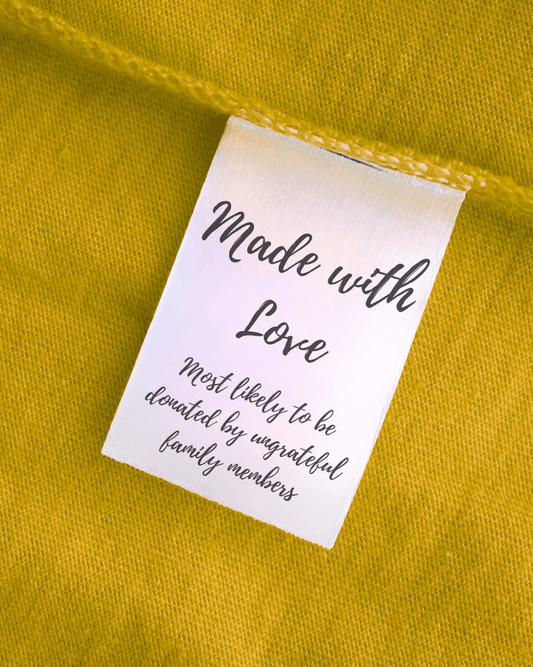 Made with
Love
Most likely to be
donated by ungrateful
family members